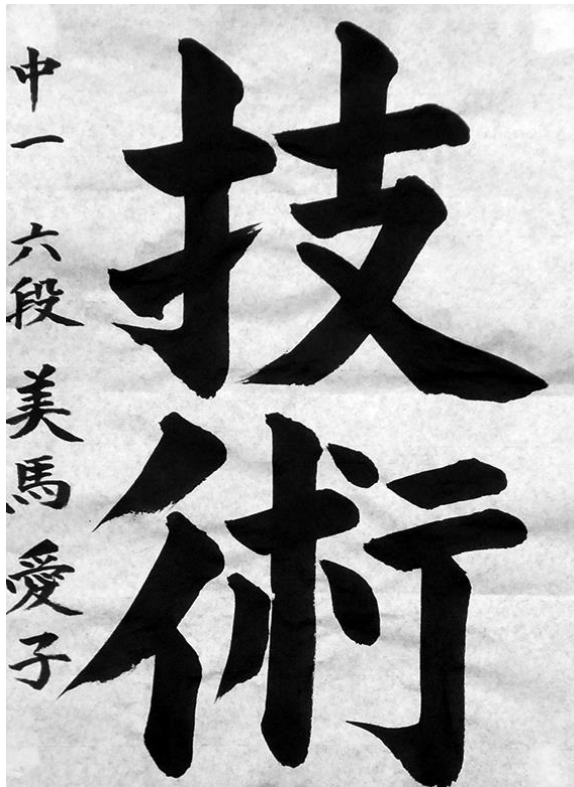 技術
中一 六段 美馬愛子